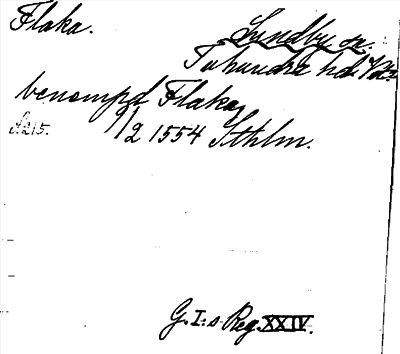 Flaka.
Sundby sn.
Tuhundra hd
benempd Flaka,
S. 215.
9/2 1554 Sthlm.
G. I:s Reg. XXIV.